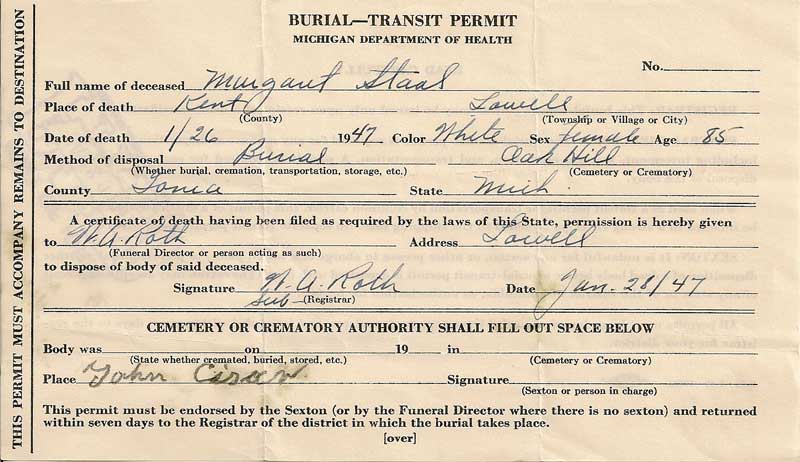 BURIAL—TRANSIT PERMIT
MICHIGAN DEPARTMENT OF HEALTH
No.
Full name of deceased Margaret Staal
Place of death Kent Lowell
(County) (Township or Village or City)
Date of death 1/26 1947 Color White Sex Female Age 85
Method of disposal Burial Oak Hill
(Whether burial, cremation, transportation, storage, etc.) (Cemetery or Crematory)
County Ionia State Mich.
A certificate of death having been filed as required by the laws of this State, permission is hereby given
to W. A. Roth Address Lowell
(Funeral Director or person acting as such)
to dispose of body of said deceased.
Signature W. A. Roth Date Jan. 28/47
Sub (Registrar)
CEMETERY OR CREMATORY AUTHORITY SHALL FILL OUT SPACE BELOW
Body was on 19 in
(State whether cremated, buried, stored, etc.) (Cemetery or Crematory)
Place John Signature
(Sexton or person in charge)
This permit must be endorsed by the Sexton (or by the Funeral Director where there is no sexton) and returned
within seven days to the Registrar of the district in which the burial takes place.
[over]
THIS PERMIT MUST ACCOMPANY REMAINS TO DESTINATION